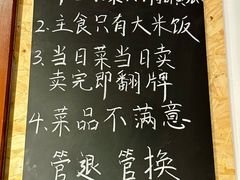 2.主食只有大米饭
3.当日菜当日卖
卖完即翻牌
4.菜品不满意
管退 管换